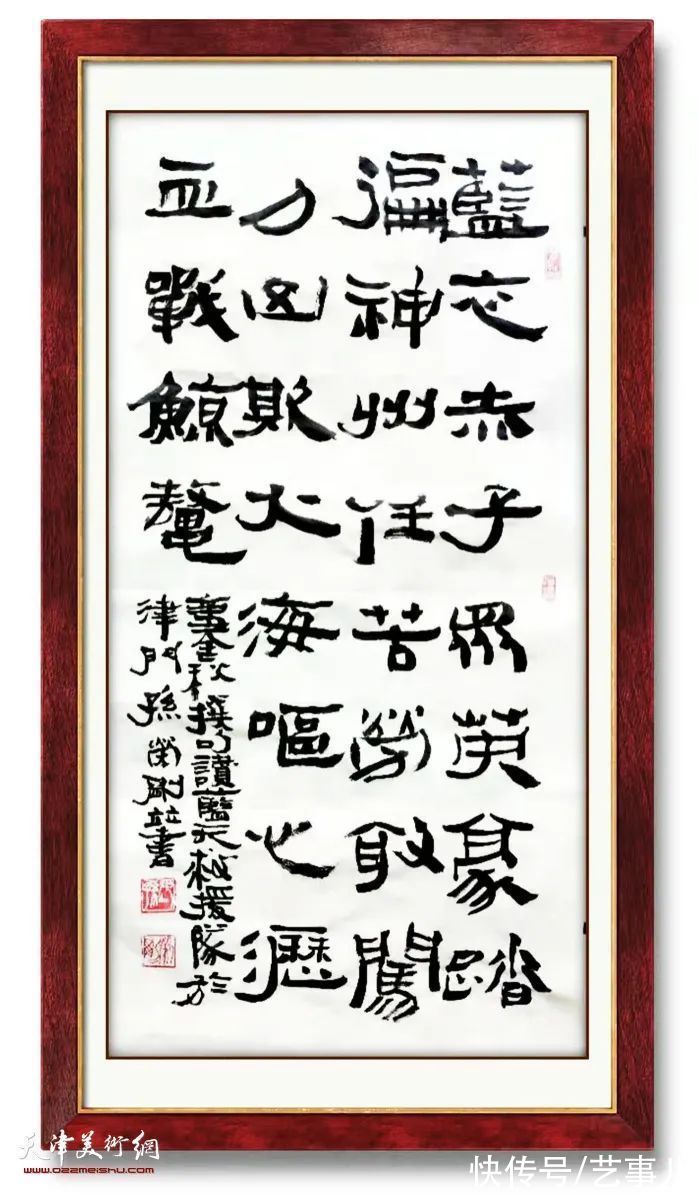 藍天赤子眾英豪踏
遍神州任苦勞敢闖
刀山欺火海嘔心瀝
血戰鯨鼇
秋撰句讚藍天救援隊於
津門孫書
天津美術網
www.022meishu.com
快传号/艺事